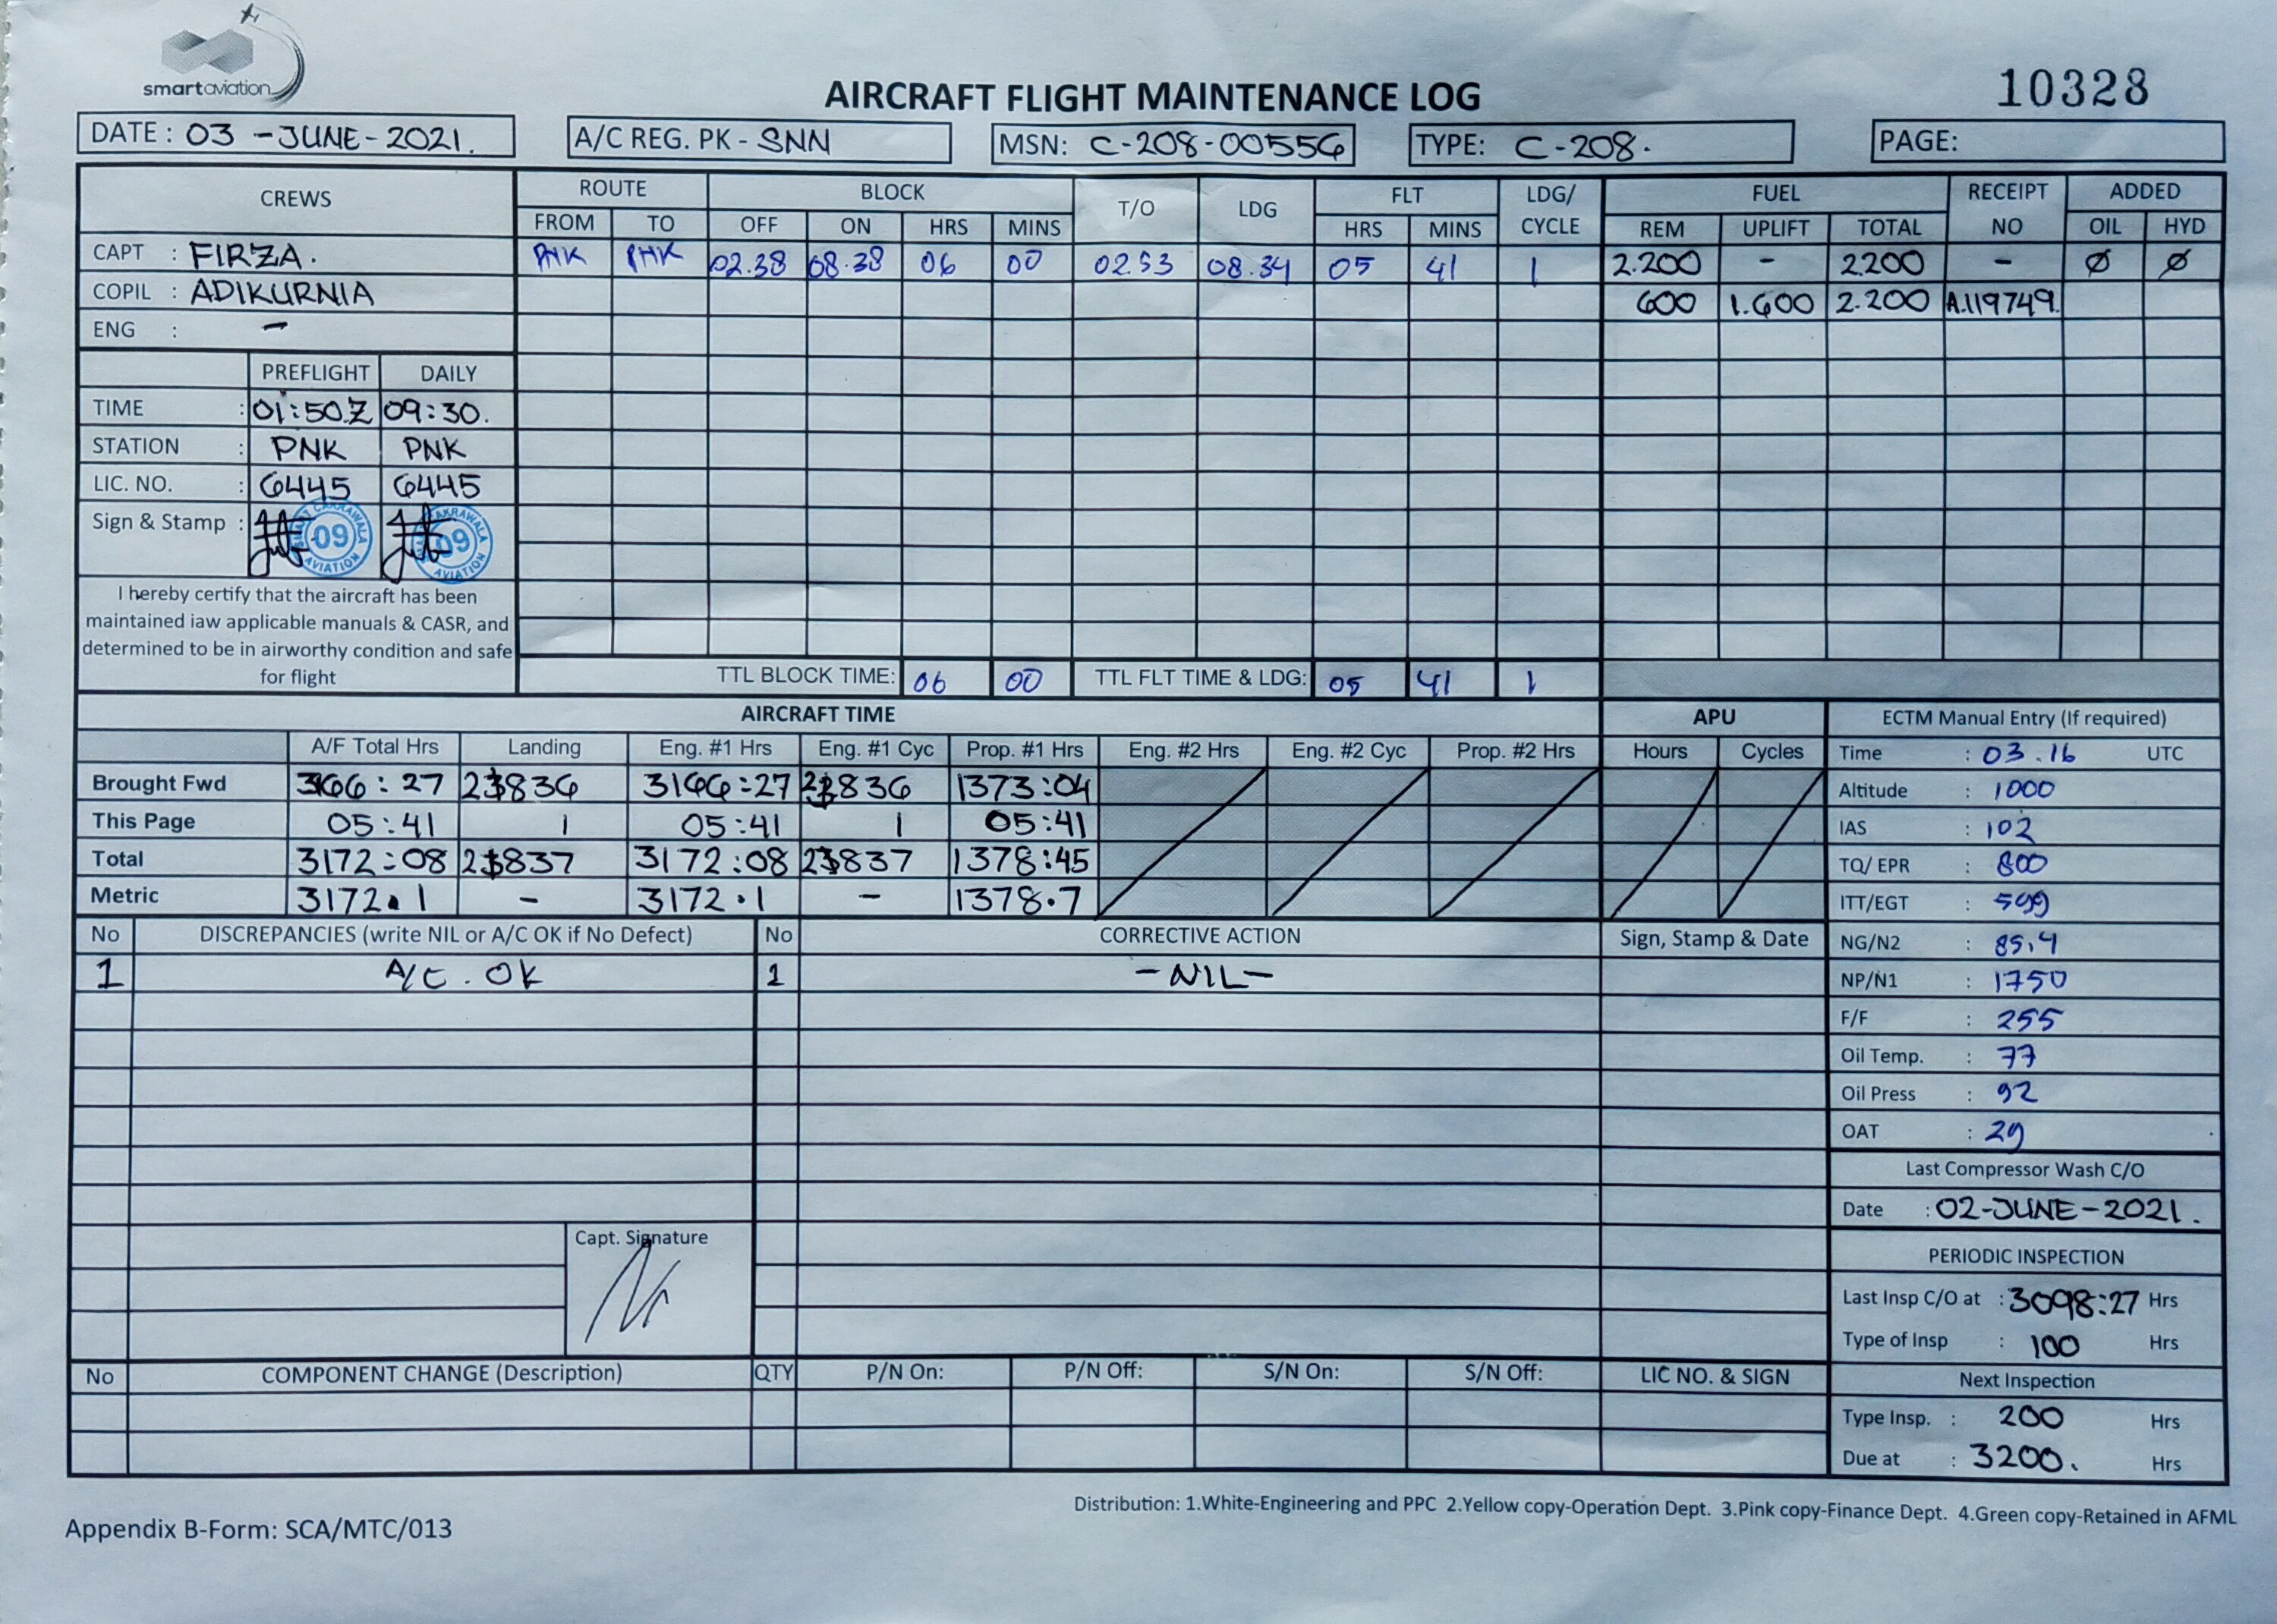 smartaviation
10328
AIRCRAFT FLIGHT MAINTENANCE LOG
DATE : 03 -JUNE-2021.
A/C REG. PK - SNN
MSN: C-208-00556
TYPE: C-208.
PAGE:
CREWS
ROUTE BLOCK T/O LDG FLT LDG/ CYCLE FUEL RECEIPT NO ADDED
FROM TO OFF ON HRS MINS HRS MINS REM UPLIFT TOTAL OIL HYD
CAPT : FIRZA.
PNK PNK 02.38 08.38 06 00 02.53 08.34 05 41 1 2.200 - 2200 - Ø Ø
COPIL : ADIKURNIA
600 1.600 2.200 A.119749.
ENG : -
PREFLIGHT DAILY
TIME : 01:50.Z 09:30.
STATION : PNK PNK
LIC. NO. : 6445 6445
Sign & Stamp :
CAKRAWALA 09 AVIATION
AKRAWALA 09 AVIATION
I hereby certify that the aircraft has been
maintained iaw applicable manuals & CASR, and
determined to be in airworthy condition and safe
for flight
TTL BLOCK TIME: 06 00 TTL FLT TIME & LDG: 05 41 1
AIRCRAFT TIME APU
A/F Total Hrs Landing Eng. #1 Hrs Eng. #1 Cyc Prop. #1 Hrs Eng. #2 Hrs Eng. #2 Cyc Prop. #2 Hrs Hours Cycles
Brought Fwd 3166:27 3166:27 1373:04
This Page 05:41 1 05:41 1 05:41
Total 3172:08 3172:08 1378:45
Metric 3172.1 - 3172.1 - 1378.7
ECTM Manual Entry (If required)
Time : 03.16 UTC
Altitude : 1000
IAS : 102
TQ/ EPR : 800
ITT/EGT : 599
NG/N2 : 85.4
NP/N1 : 1750
F/F : 255
Oil Temp. : 77
Oil Press : 92
OAT : 29
Last Compressor Wash C/O
Date : 02-JUNE-2021.
PERIODIC INSPECTION
Last Insp C/O at : 3098:27 Hrs
Type of Insp : 100 Hrs
Next Inspection
Type Insp. : 200 Hrs
Due at : 3200. Hrs
No DISCREPANCIES (write NIL or A/C OK if No Defect) No CORRECTIVE ACTION Sign, Stamp & Date
1 A/C. OK 1 -NIL-
Capt. Signature
No COMPONENT CHANGE (Description) QTY P/N On: P/N Off: S/N On: S/N Off: LIC NO. & SIGN
Distribution: 1.White-Engineering and PPC 2.Yellow copy-Operation Dept. 3.Pink copy-Finance Dept. 4.Green copy-Retained in AFML
Appendix B-Form: SCA/MTC/013